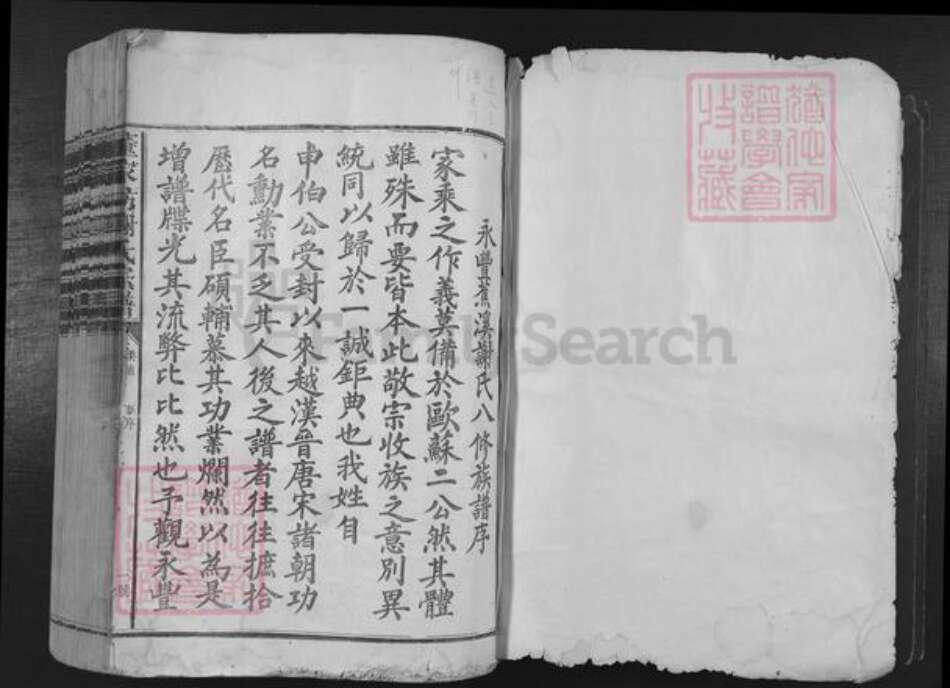 永豐蕉溪謝氏八修族譜序
家乘之作義莫備於歐蘇二公然其體
雖殊而要皆本此敬宗收族之意別異
統同以歸於一誠鉅典也我姓自
申伯公受封以來越漢晉唐宋諸朝功
名勳業不乏其人後之譜者往往摭拾
歷代名臣碩輔慕其功業爛然以為是
增譜牒光其流弊比比然也予觀永豐
FamilySearch